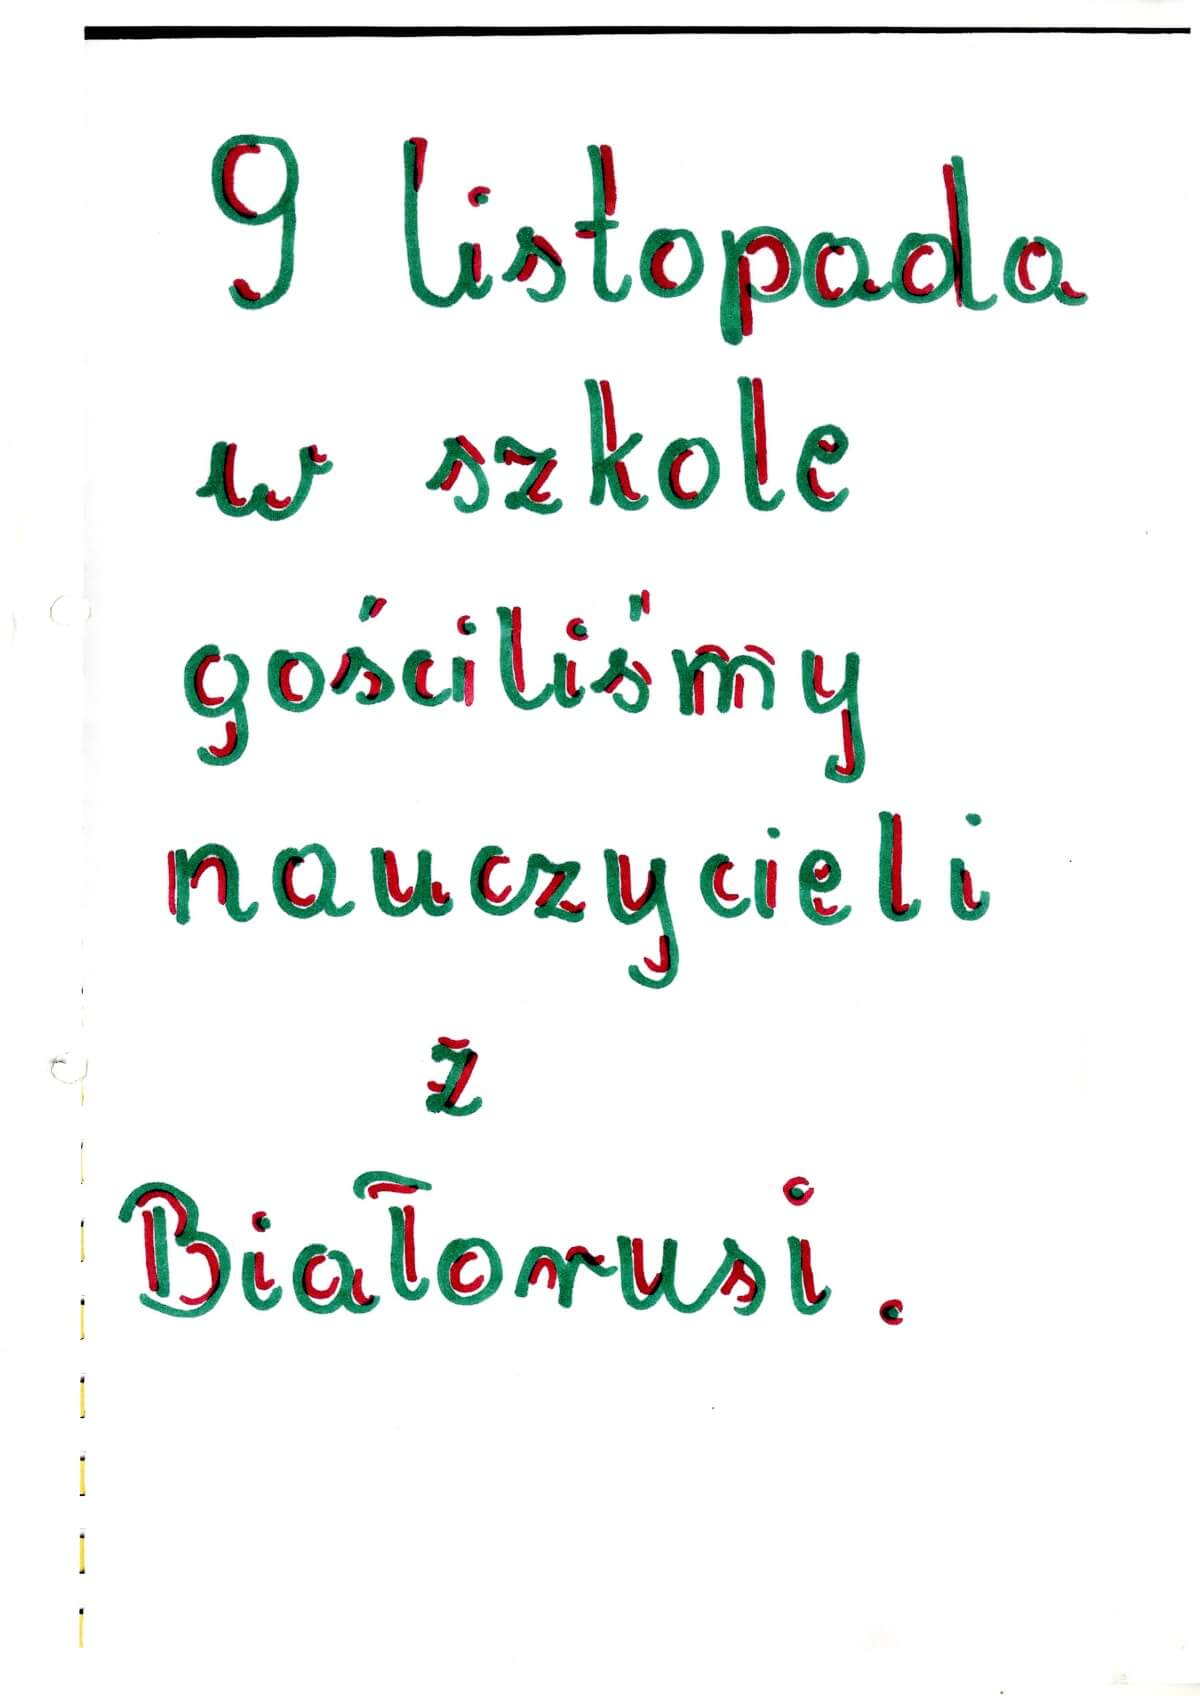 9 listopada
w szkole
gościliśmy
nauczycieli
z
Białorusi.